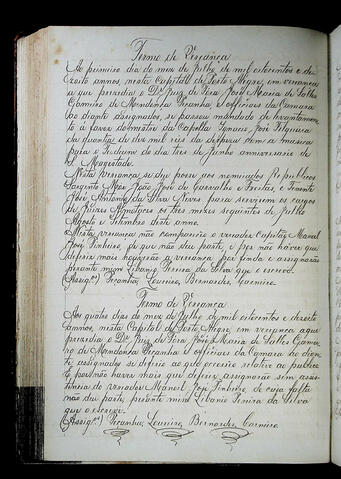 Termo de Vereança
Ao primeiro dia do mez de Julho de mil oitocentos e de-
zoito annos, nesta Capital de Porto Alegre, em vereança
a que presedio o Dr. Juiz de Fora José Maria de Salles
Gameiro de Mendonça Peçanha e officiaes da Camara
ao diante assignados, se passou mandado de levantamento
a favor do mestre da Capella Ignacio José
da quantia de dez mil réis da despeza com a musica
para o Tedeum do dia tres de Junho anniversario de
S. Magestade.
Nesta vereança se deu posse aos nomeados
Sargento Mór João José de Carvalho e Freitas, e Tenente
José Antonio da Silva Neves para servirem os cargos
de Juizes Almotaces os tres mezes seguintes de Julho
Agosto e Setembro deste anno.
Nesta vereança não compareceo o vereador Capitão Manoel
José Pinheiro, de que não deu parte, e por não haver que
deferir mais houverão a vereança por finda e assignarão
perante mim Libanio Pereira da Silva que o escrevi.
(Assigos.) Peçanha, Loureiro, Bernardes, Carneiro.
Termo de Vereança
Aos quatro dias do mez de Julho de mil oitocentos e dezoito
annos, nesta Capital de Porto Alegre, em vereança a que
presedio o Dr. Juiz de Fora José Maria de Salles Gamei-
ro de Mendonça Peçanha e officiaes da Camara ao dian-
te assignados se deferio ao que occorreo relativo ao publico
E por não haver mais que deferir assignarão sem assis-
tencia do vereador Manoel José Pinheiro, de cuja falta
não deu parte, perante mim Libanio Pereira da Silva
que o escrevi.
(Assigos.) Peçanha, Loureiro, Bernardes, Carneiro.